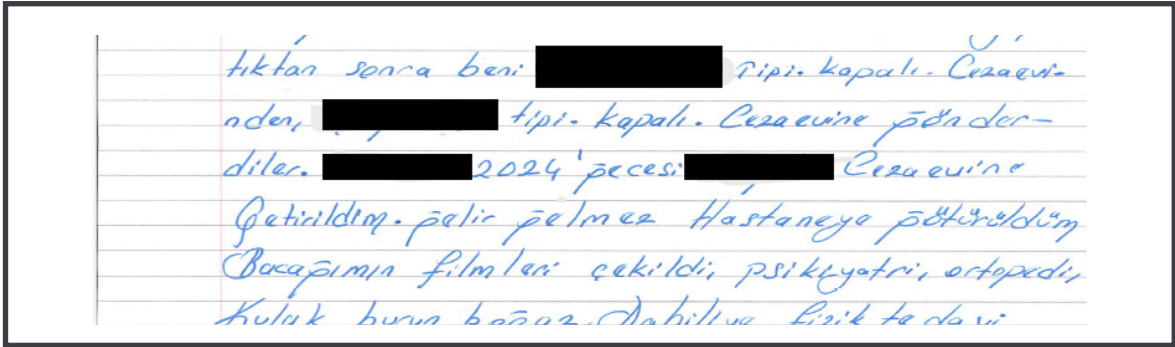 tıktan sonra beni Tipi. kapalı. Cezaevi-
nden, tipi. kapalı. Cezaevine gönder-
diler. 2024' gecesi Cezaevine
Getirildim. gelir gelmez Hastaneye götürüldüm
Bacağımın filmleri çekildi, psikiyatri, ortopedi,
Kulak burun boğaz, Dahiliye fizik tedavi